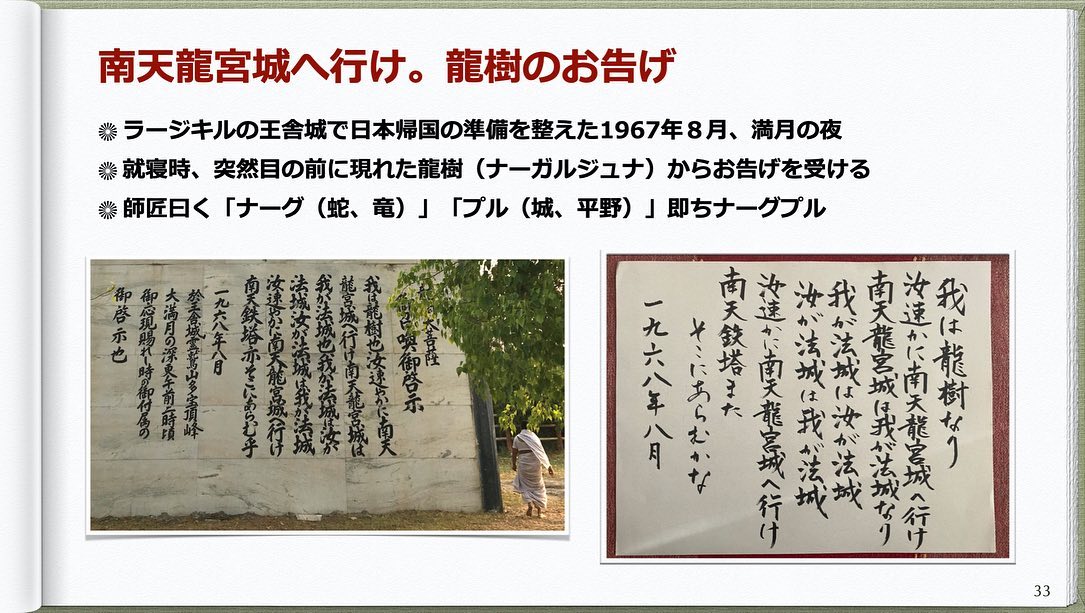 南天龍宮城へ行け。龍樹のお告げ
ラージキルの王舎城で日本帰国の準備を整えた1967年８月、満月の夜
就寝時、突然目の前に現れた龍樹（ナーガルジュナ）からお告げを受ける
師匠曰く「ナーグ（蛇、竜）」「プル（城、平野）」即ちナーグプル
大菩薩
御啓示
我は龍樹也汝速やかに南天
龍宮城へ行け南天龍宮城は
我が法城也我が法城は汝が
法城汝が法城は我が法城
汝速やかに南天龍宮城へ行け
南天鉄塔亦そこにあらむ乎
一九六八年八月
於王舎城霊鷲山多宝頂峰
大満月の深更午前二時頃
御心現賜れし時の御付属の
御啓示也
我は龍樹なり
汝速かに南天龍宮城へ行け
南天龍宮城は我が法城なり
我が法城は汝が法城
汝が法城は我が法城
汝速かに南天龍宮城へ行け
南天鉄塔また
そこにあらむかな
一九六八年八月
33